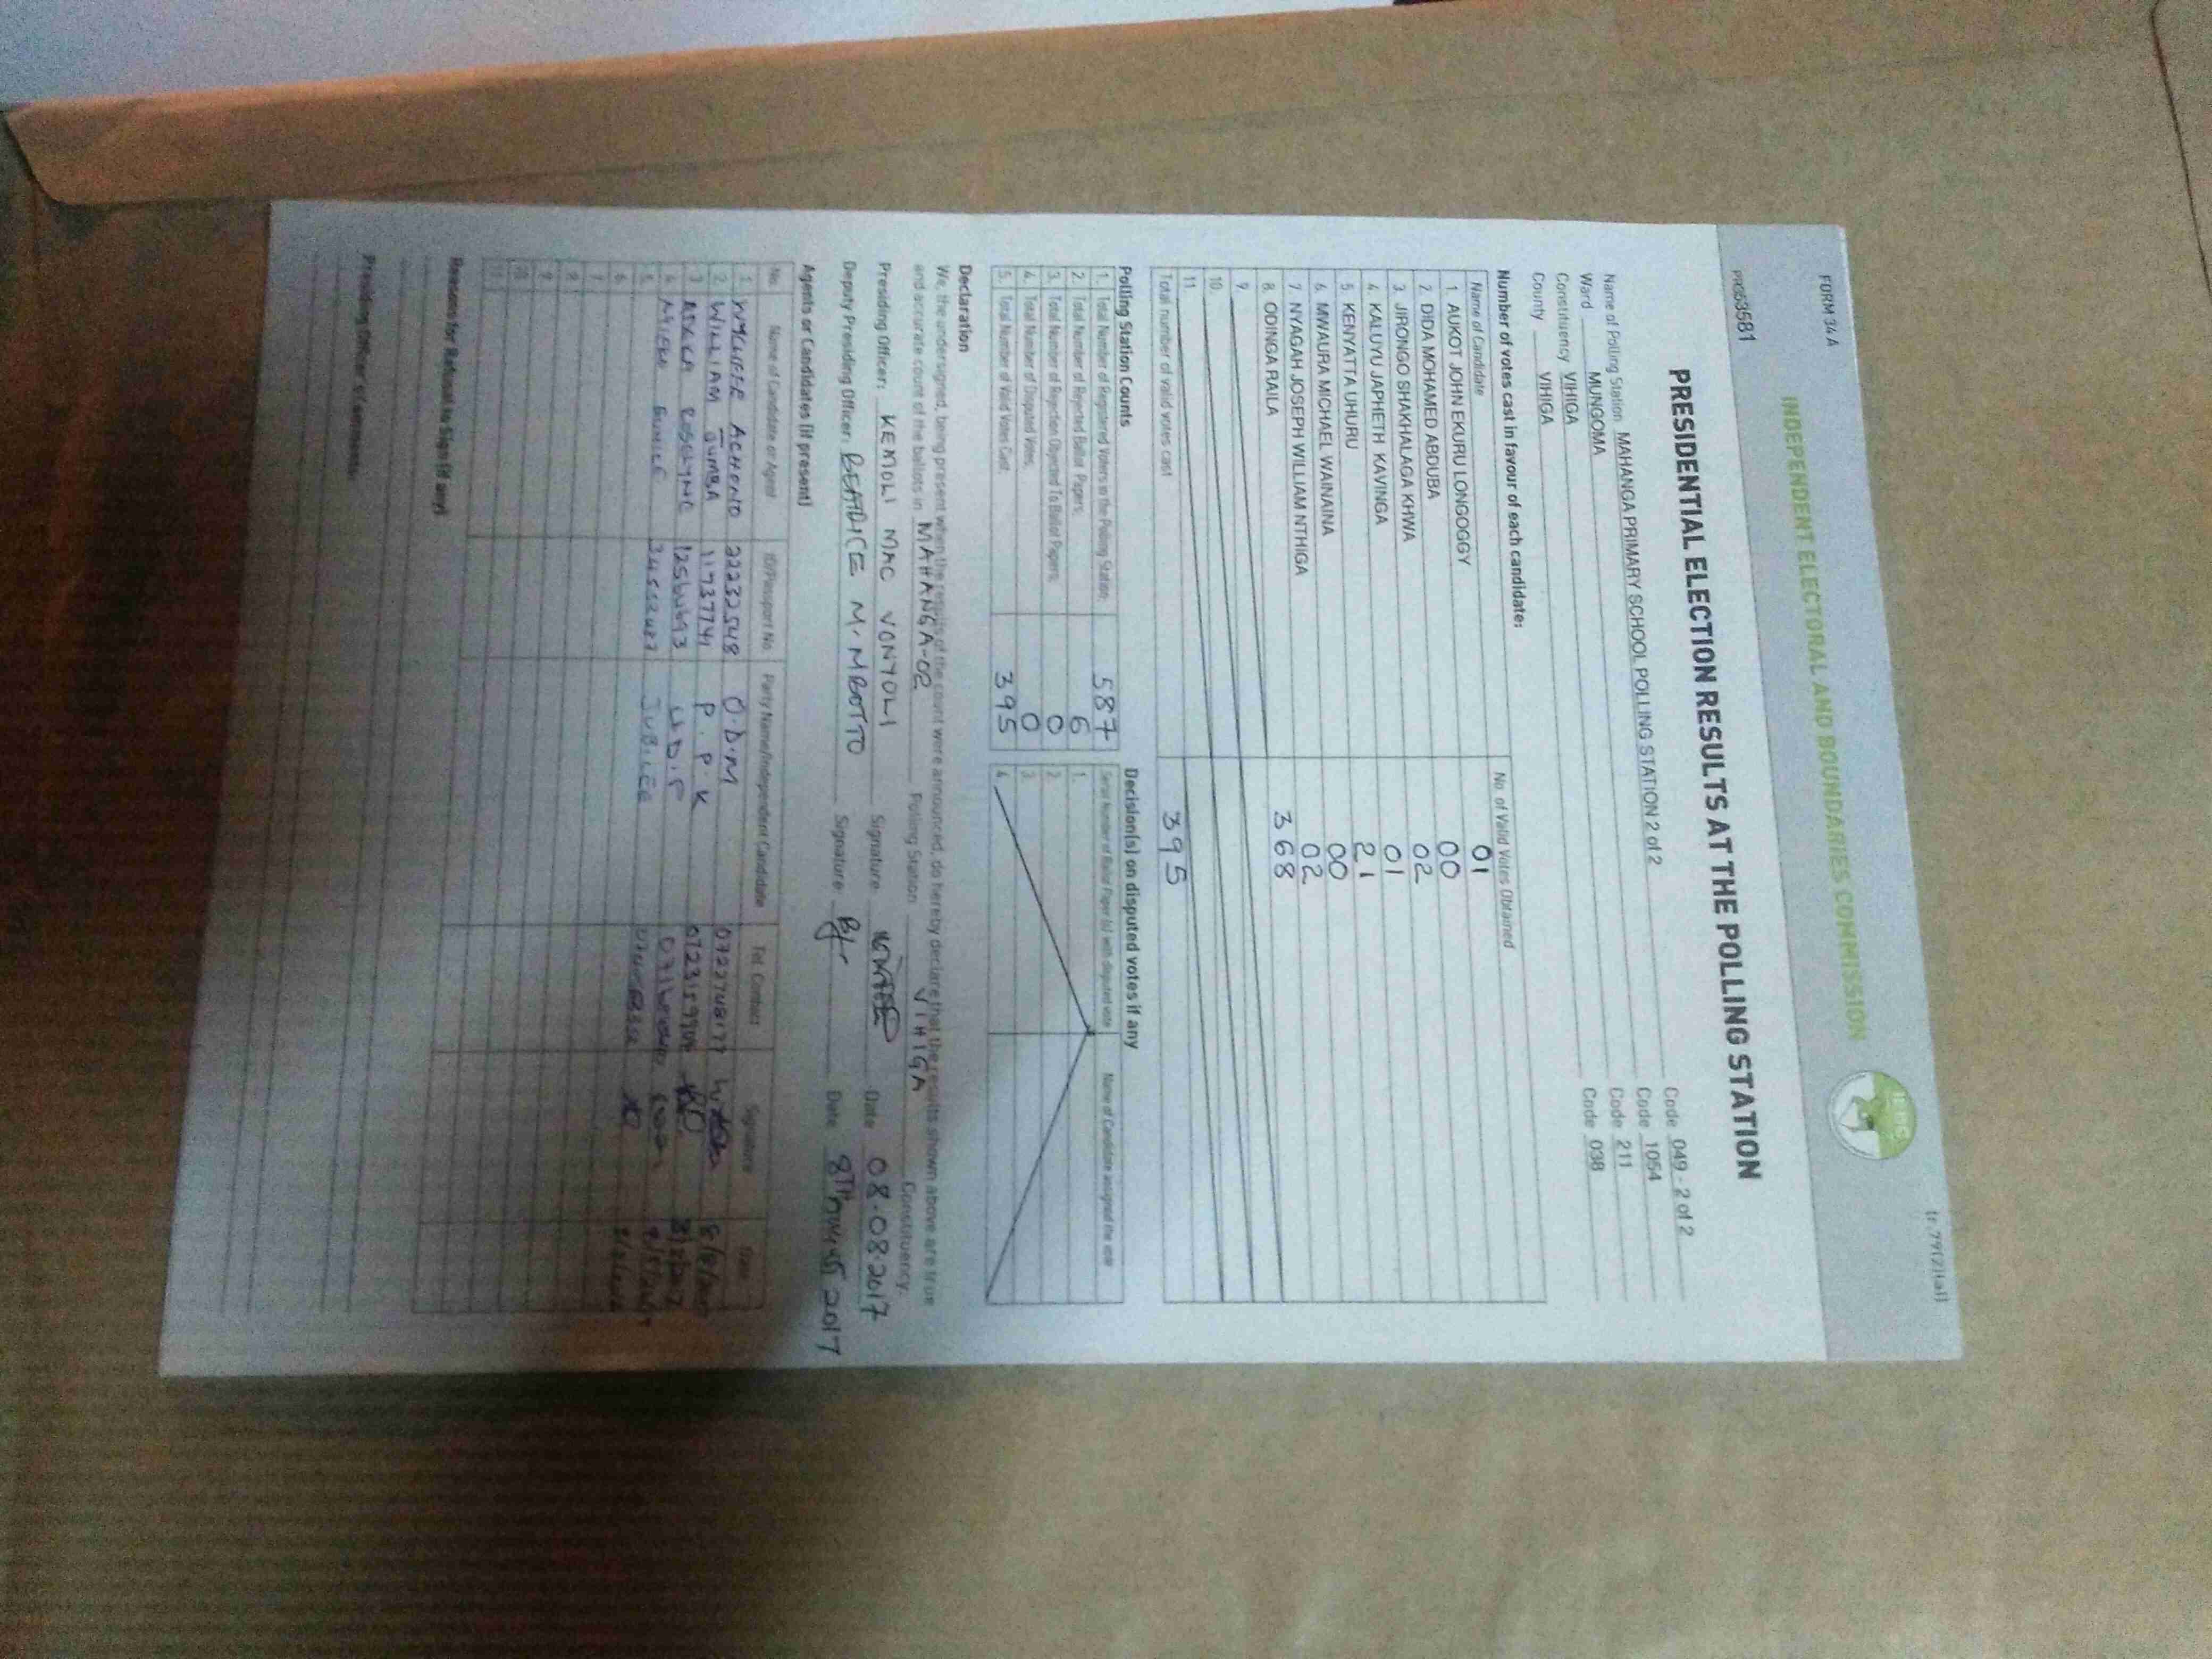 FORM 34A
(r.79(2)(a))
INDEPENDENT ELECTORAL AND BOUNDARIES COMMISSION
IEBC
PRES3581
PRESIDENTIAL ELECTION RESULTS AT THE POLLING STATION
Name of Polling Station MAHANGA PRIMARY SCHOOL POLLING STATION 2 of 2 Code 049 - 2 of 2
Ward MUNGOMA Code 1054
Constituency VIHIGA Code 211
County VIHIGA Code 038
Number of votes cast in favour of each candidate:
Name of Candidate No. of Valid Votes Obtained
1. AUKOT JOHN EKURU LONGOGGY 01
2. DIDA MOHAMED ABDUBA 00
3. JIRONGO SHAKHALAGA KHWA 02
4. KALUYU JAPHETH KAVINGA 01
5. KENYATTA UHURU 21
6. MWAURA MICHAEL WAINAINA 00
7. NYAGAH JOSEPH WILLIAM NTHIGA 02
8. ODINGA RAILA 368
9.
10.
11.
Total number of valid votes cast 395
Polling Station Counts
1. Total Number of Registered Voters in the Polling Station; 587
2. Total Number of Rejected Ballot Papers; 6
3. Total Number of Rejection Objected To Ballot Papers; 0
4. Total Number of Disputed Votes; 0
5. Total Number of Valid Votes Cast 395
Decision(s) on disputed votes if any
Serial Number of Ballot Paper (s) with disputed vote Name of Candidate assigned the vote
1.
2.
3.
4.
Declaration
We, the undersigned, being present when the results of the count were announced, do hereby declare that the results shown above are true
and accurate count of the ballots in MAHANGA-02 Polling Station VIHIGA Constituency.
Presiding Officer: KEMOLI MAC VONYOLI Signature Date 08.08.2017
Deputy Presiding Officer: BEATRICE M. MBOTTO Signature Date 8TH 2017
Agents or Candidates (if present)
No. Name of Candidate or Agent ID/Passport No. Party Name/Independent Candidate Tel. Contact Signature Date
1. WYCLIFFE ACHONO 22232548 O.D.M 0727748177
2. WILLIAM JUMBA 11737741 P.P.K
3. ROSELYNE U.D.P
4. EUNICE JUBILEE
5.
6.
7.
8.
9.
10.
11.
Reasons for Refusal to Sign (if any)
Presiding Officer's Comments: